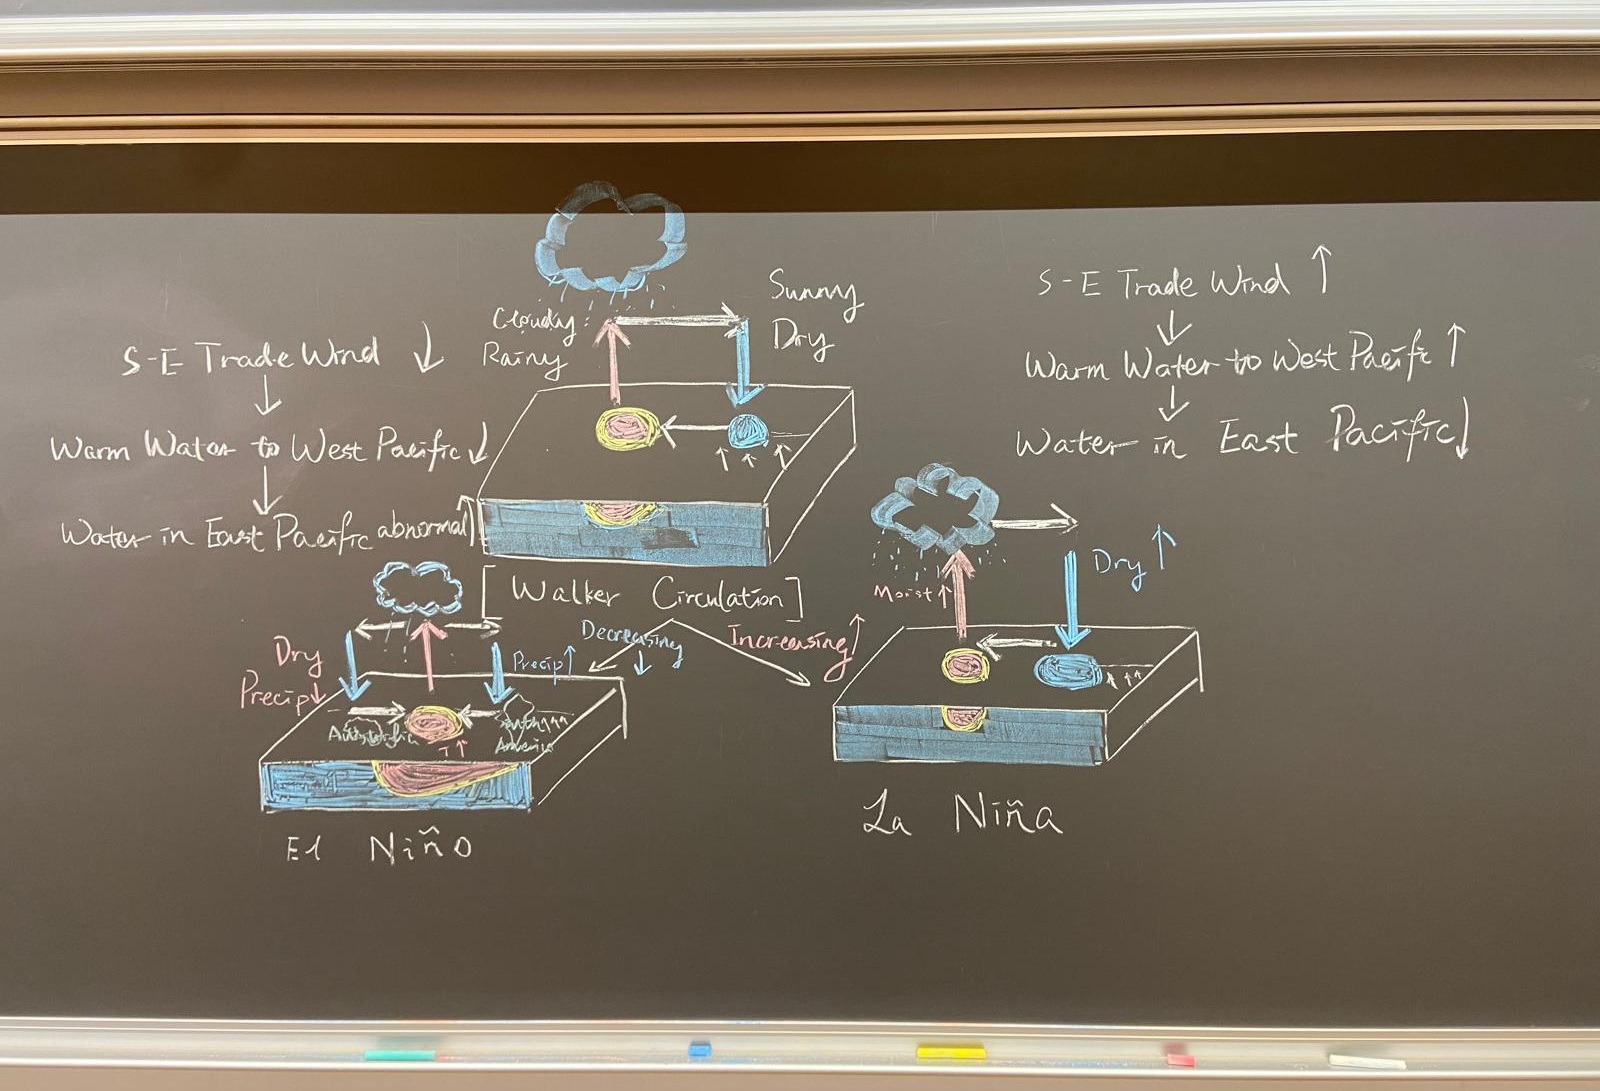 Sunny
Dry
Cloudy
Rainy
S-E Trade Wind ↓
↓
Warm Water to West Pacific ↓
↓
Water in East Pacific abnormal ↑
S-E Trade Wind ↑
↓
Warm Water to West Pacific ↑
↓
Water in East Pacific ↓
[Walker Circulation]
Decreasing ↓
Increasing ↑
Dry
Precip ↓
Precip ↑
Australia
South
America
T ↑
El Niño
Moist ↑
Dry ↑
La Niña